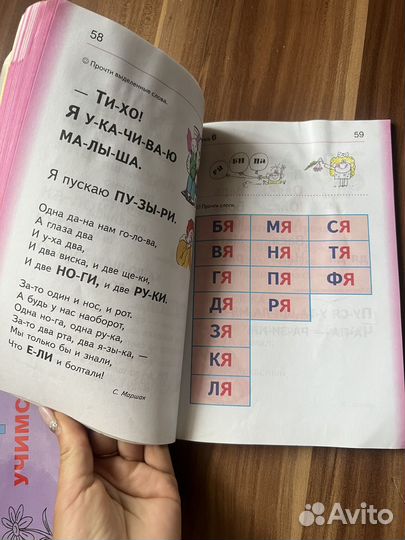 58
Прочти выделенные слова.
— ТИ-ХО!
Я У-КА-ЧИ-ВА-Ю
МА-ЛЫ-ША.
Я пускаю ПУ-ЗЫ-РИ.
Одна да-на нам го-ло-ва,
А глаза два
И у-ха два,
И два виска, и две ще-ки,
И две НО-ГИ, и две РУ-КИ.
За-то один и нос, и рот.
А будь у нас наоборот,
Одна но-га, одна ру-ка,
За-то два рта, два я-зы-ка, —
Мы только бы и знали,
Что Е-ЛИ и болтали!
С. Маршак
6
59
би на
Прочти слоги.
БЯ МЯ СЯ
ВЯ НЯ ТЯ
ГЯ ПЯ ФЯ
ДЯ РЯ
ЗЯ
КЯ
ЛЯ
УЧИМС
Avito